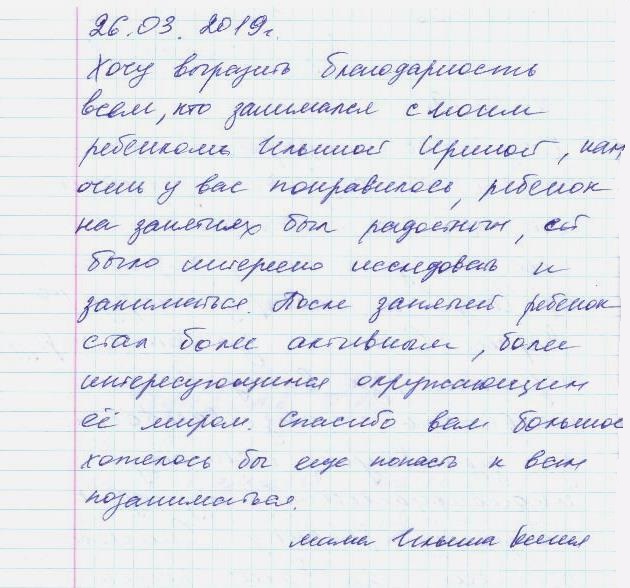 26.03.2019г.
Хочу выразить благодарность
всем, кто занимался с моим
ребенком Ильиной Ириной, нам
очень у вас понравилось, ребенок
на занятиях был радостным, ей
было интересно исследовать и
заниматься. После занятий ребенок
стал более активным, более
интересующимся окружающим
её миром. Спасибо вам большое
хотелось бы еще попасть к вам
позаниматься.
мама Ильина